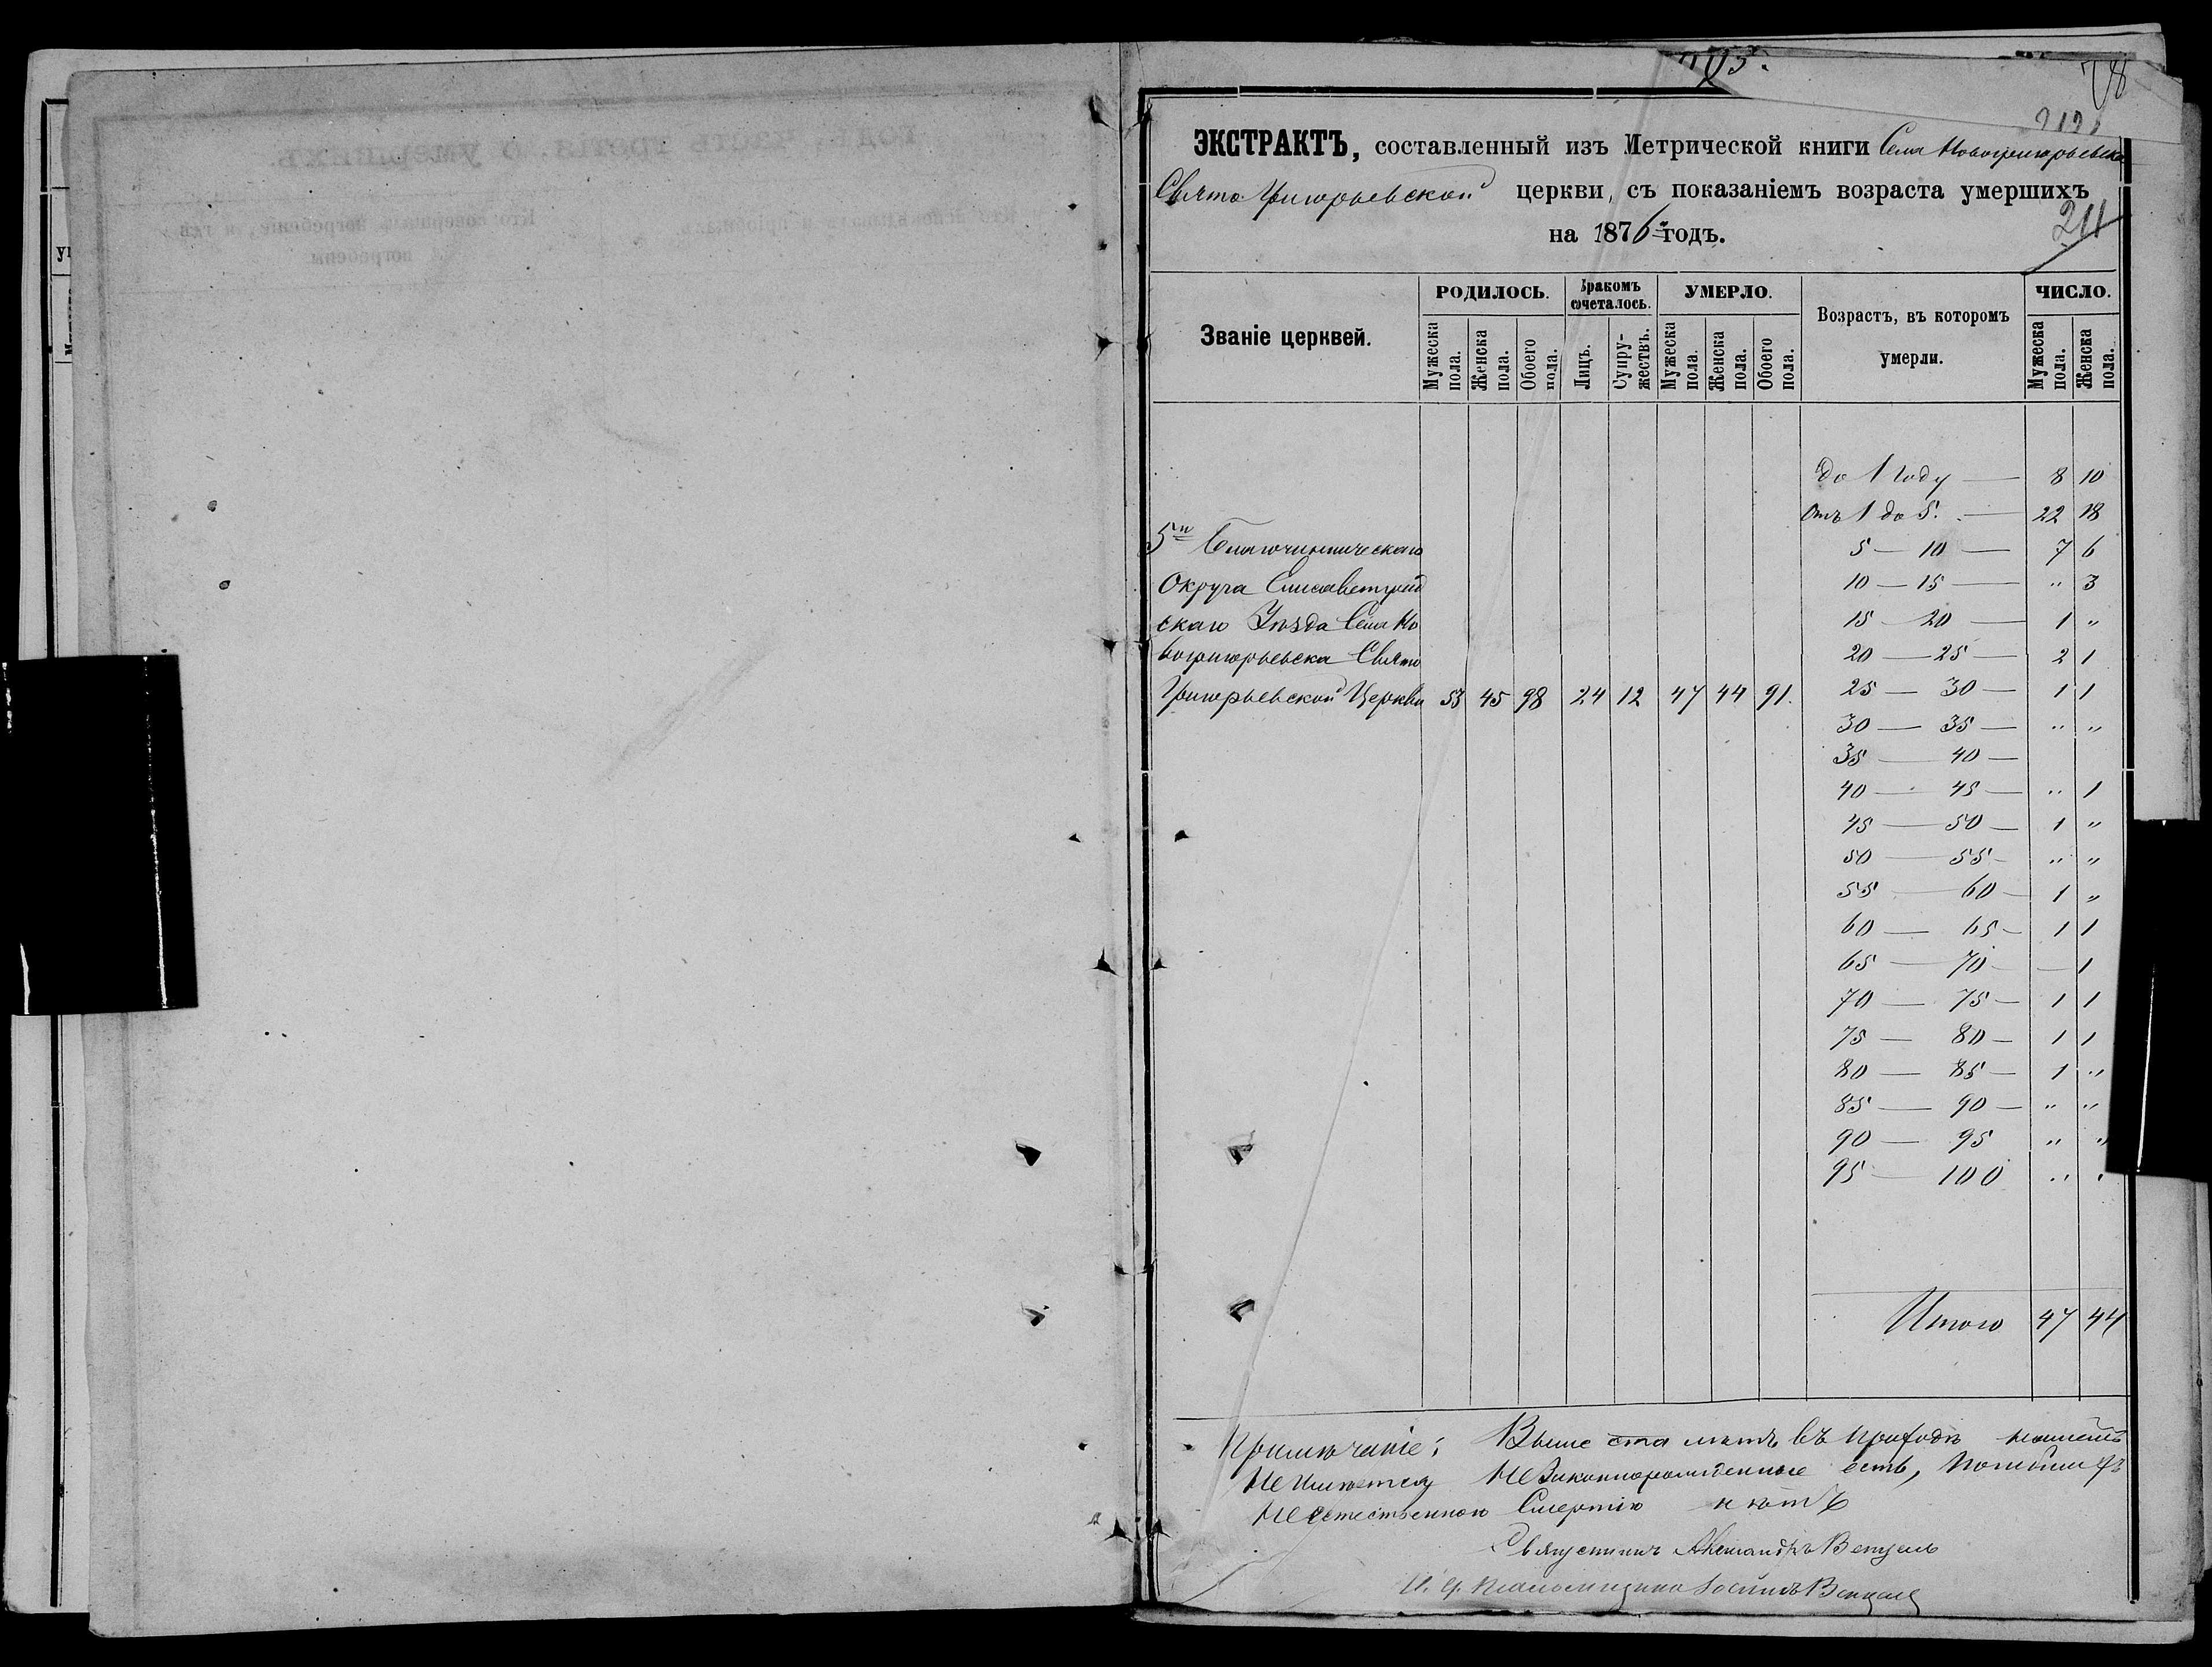 203.
78
212
ЭКСТРАКТЪ, составленный изъ Метрической книги Села Новогригорьевска
Свято Григорьевской церкви, съ показаніемъ возраста умершихъ
на 1876 годъ.
211
Званіе церквей.
РОДИЛОСЬ.
Бракомъ сочеталось.
УМЕРЛО.
Возрастъ, въ которомъ умерли.
ЧИСЛО.
Мужеска пола.
Женска пола.
Обоего пола.
Лицъ.
Супружествъ.
Мужеска пола.
Женска пола.
Обоего пола.
Мужеска пола.
Женска пола.
До 1 году — 8 10
Отъ 1 до 5. — 22 18
5 — 10 — 7 6
10 — 15 — " 3
15 — 20 — 1 "
20 — 25 — 2 1
25 — 30 — 1 1
30 — 35 — " "
35 — 40 —
40 — 45 — " 1
45 — 50 — 1 "
50 — 55 — " "
55 — 60 — 1 "
60 — 65 — 1 1
65 — 70 — — 1
70 — 75 — 1 1
75 — 80 — 1 1
80 — 85 — 1 "
85 — 90 — " "
90 — 95 " "
95 — 100 " "
Итого 47 44
5го Благочинническаго
Округа Елисаветград
скаго Уѣзда Села Но
вогригорьевска Свято
Григорьевской Церкви 53 45 98 24 12 47 44 91.
Примѣчаніе: Выше ста лѣтъ въ приходѣ нашемъ
не имѣется незаконнорожденные есть,
неестественною Смертію нѣтъ
Священникъ Александръ
И. д. Псаломщика